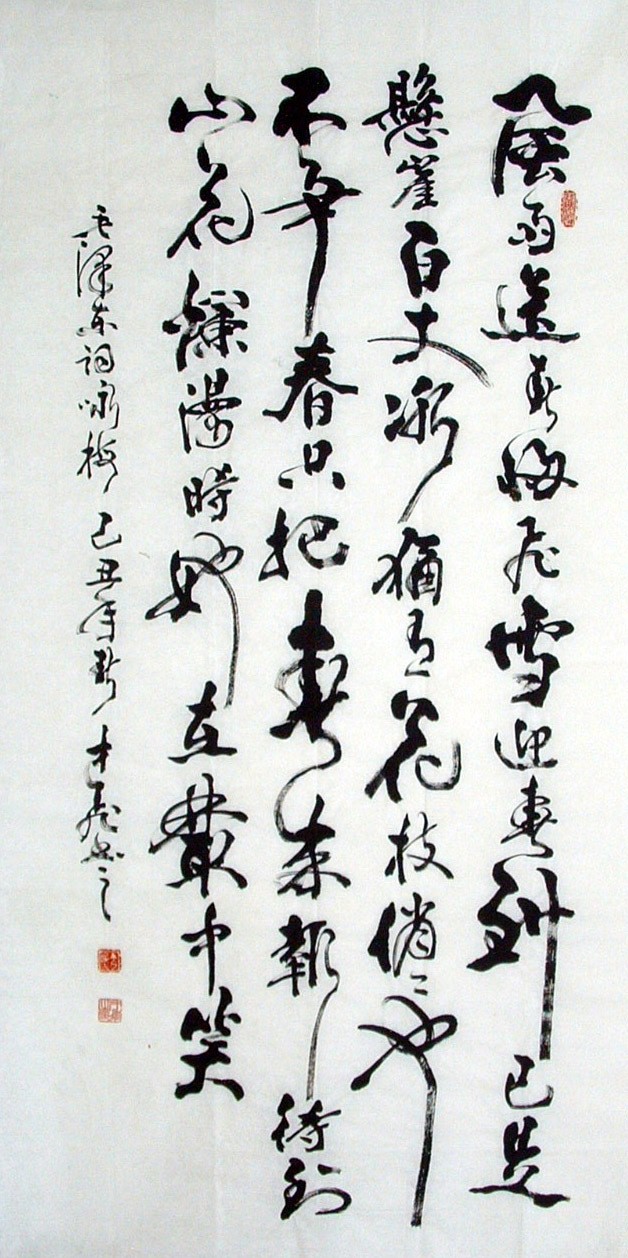 風雨送春歸飛雪迎春到已是
懸崖百丈冰猶有花枝俏〻也
不争春只把春来報待到
山花爛漫時她在叢中笑
毛澤东詞咏梅己丑年書之